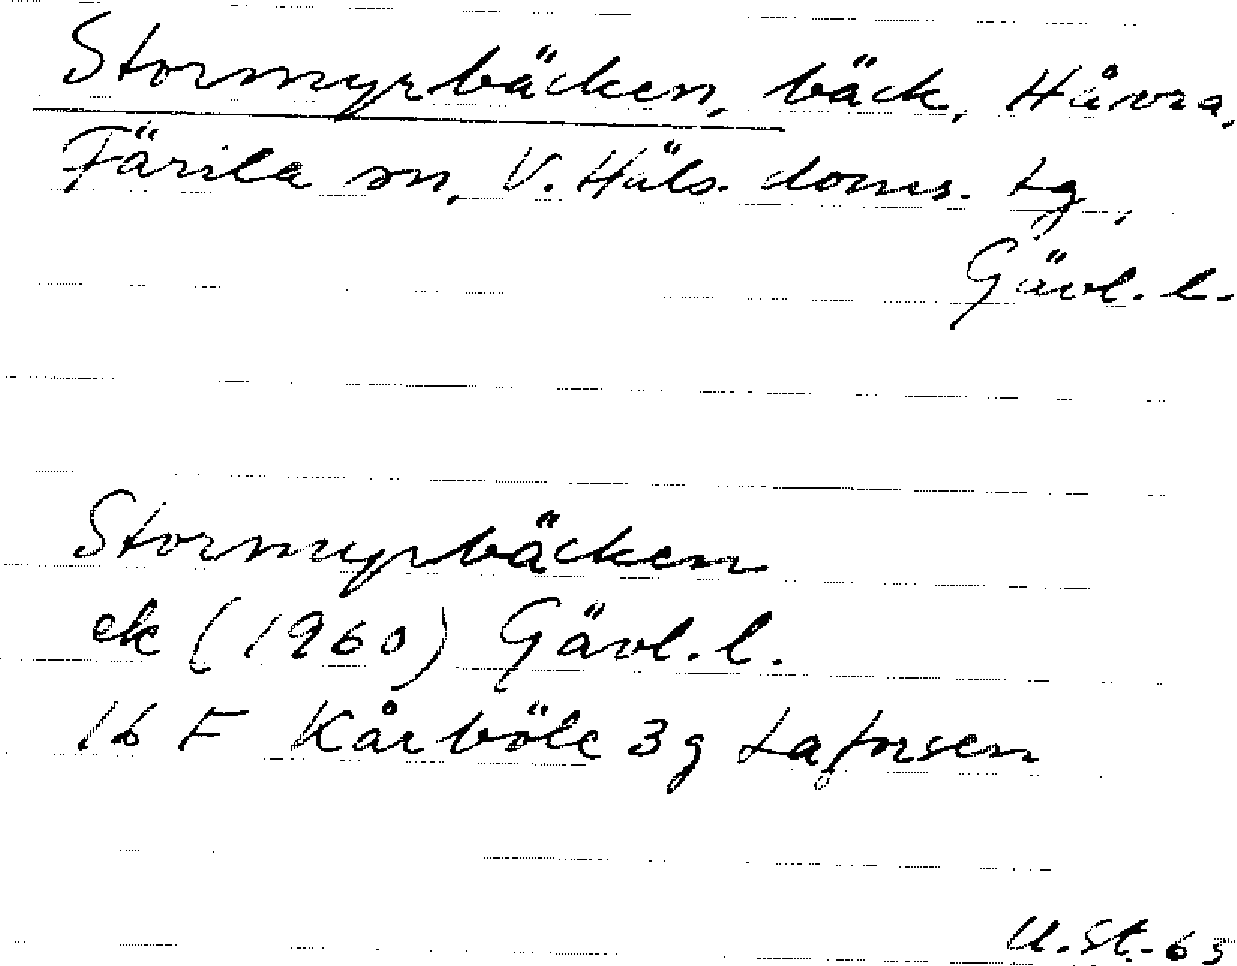 Stormyrbäcken, bäck, Håvra,
Färila sn, V. Häls. doms. tg,
Gävl. l.
Stormyrbäcken
ek (1960) Gävl. l.
16 F Kårböle 3 g Laforsen
U. St. - 65